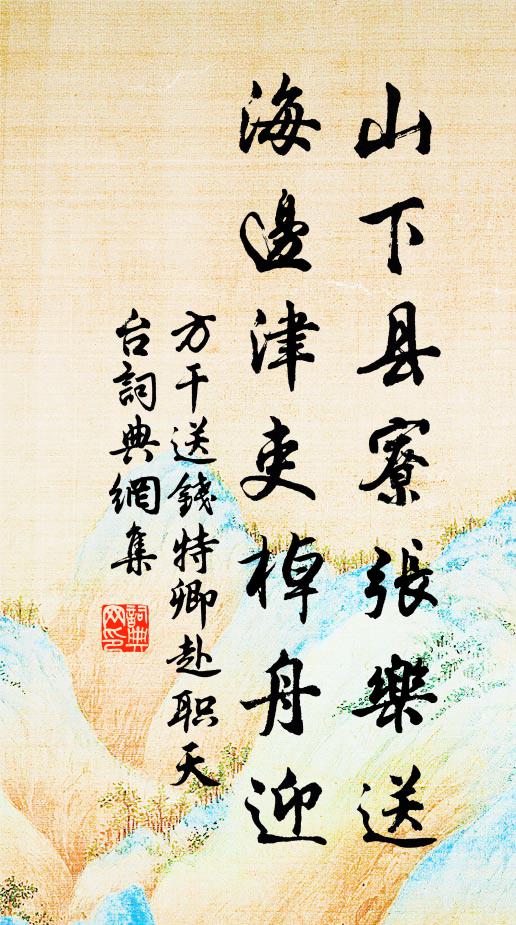 山下县寮張樂送
海邊津吏棹舟迎
方干送錢特卿赴职天
台詞典網集
詞典
网印